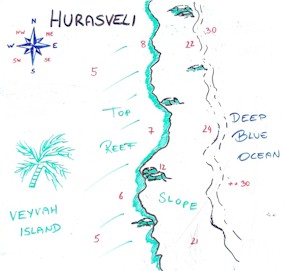 HURASVELI
N
NW
NE
W
E
SW
SE
S
8
22
30
5
TOP
REEF
7
24
DEEP
BLUE
OCEAN
12
++30
6
SLOPE
VEYVAH
ISLAND
5
21